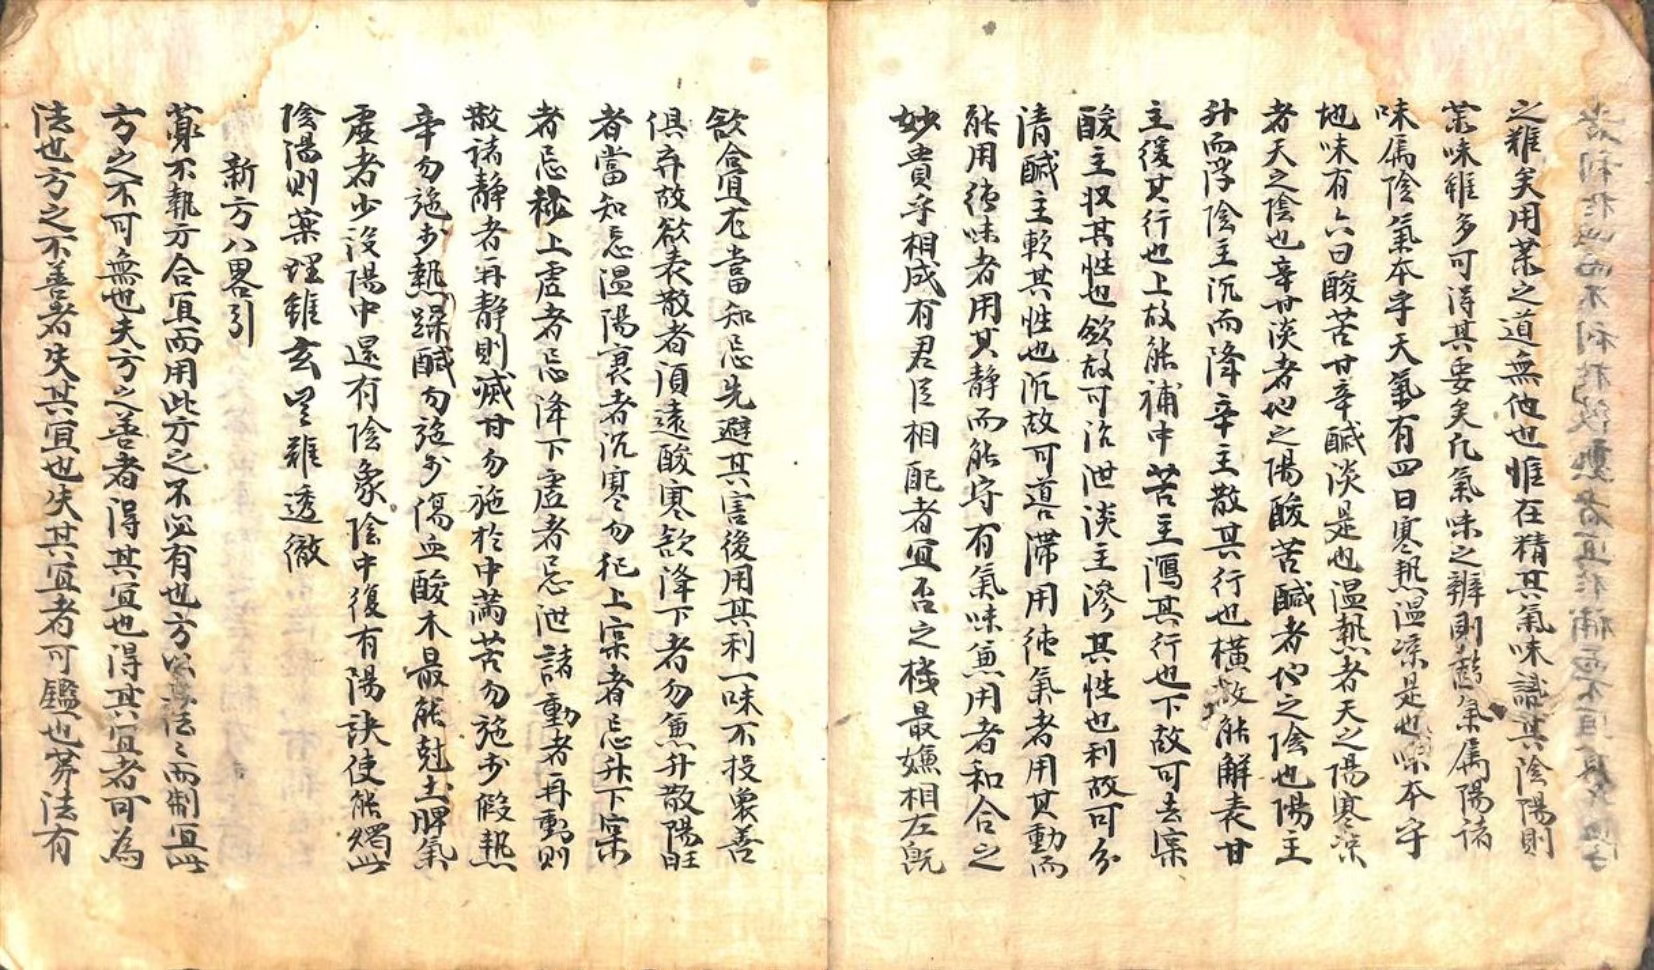 之難矣用薬之道無他也惟在精其氣味識其陰陽則
薬味雖多可淂其要矣凡氣味之辨則諸氣屬陽諸
味屬陰氣本乎天氣有四曰寒熱温凉是也味本乎
地味有六曰酸苦甘辛醎淡是也温熱者天之陽寒凉
者天之陰也辛甘淡者地之陽酸苦醎者地之陰也陽主
升而浮陰主沉而降辛主散其行也橫故能解表甘
主緩其行也上故能補中苦主瀉其行也下故可去寔
酸主収其性也歛故可治泄淡主滲其性也利故可分
清醎主軟其性也沉故可導滯用純氣者用其動而
能用純味者用其静而能守有氣味兼用者和合之
妙貴乎相成有君臣相配者宜否之機最嫌相左既
欲合宜尤當知忌先避其害後用其利一味不投衆善
俱弃故欲表散者須遠酸寒欲降下者勿兼升散陽旺
者當知忌温陽衰者沉寒勿犯上寔者忌升下寔
者忌秘上虛者忌降下虛者忌泄諸動者再動則
散諸静者再静則滅甘勿施於中满苦勿施於假熱
辛勿施於熱躁醎勿施於傷血酸木最能尅土脾氣
虛者少沒陽中還有陰象陰中復有陽訣使能燭此
陰陽則薬理雖玄豈難透徹
新方八畧引
藥不執方合宜而用此方之不必有也方以立法〻而制宜此
方之不可無也夫方之善者得其宜也得其宜者可為
法也方之不善者失其宜也失其宜者可鑑也筭法有